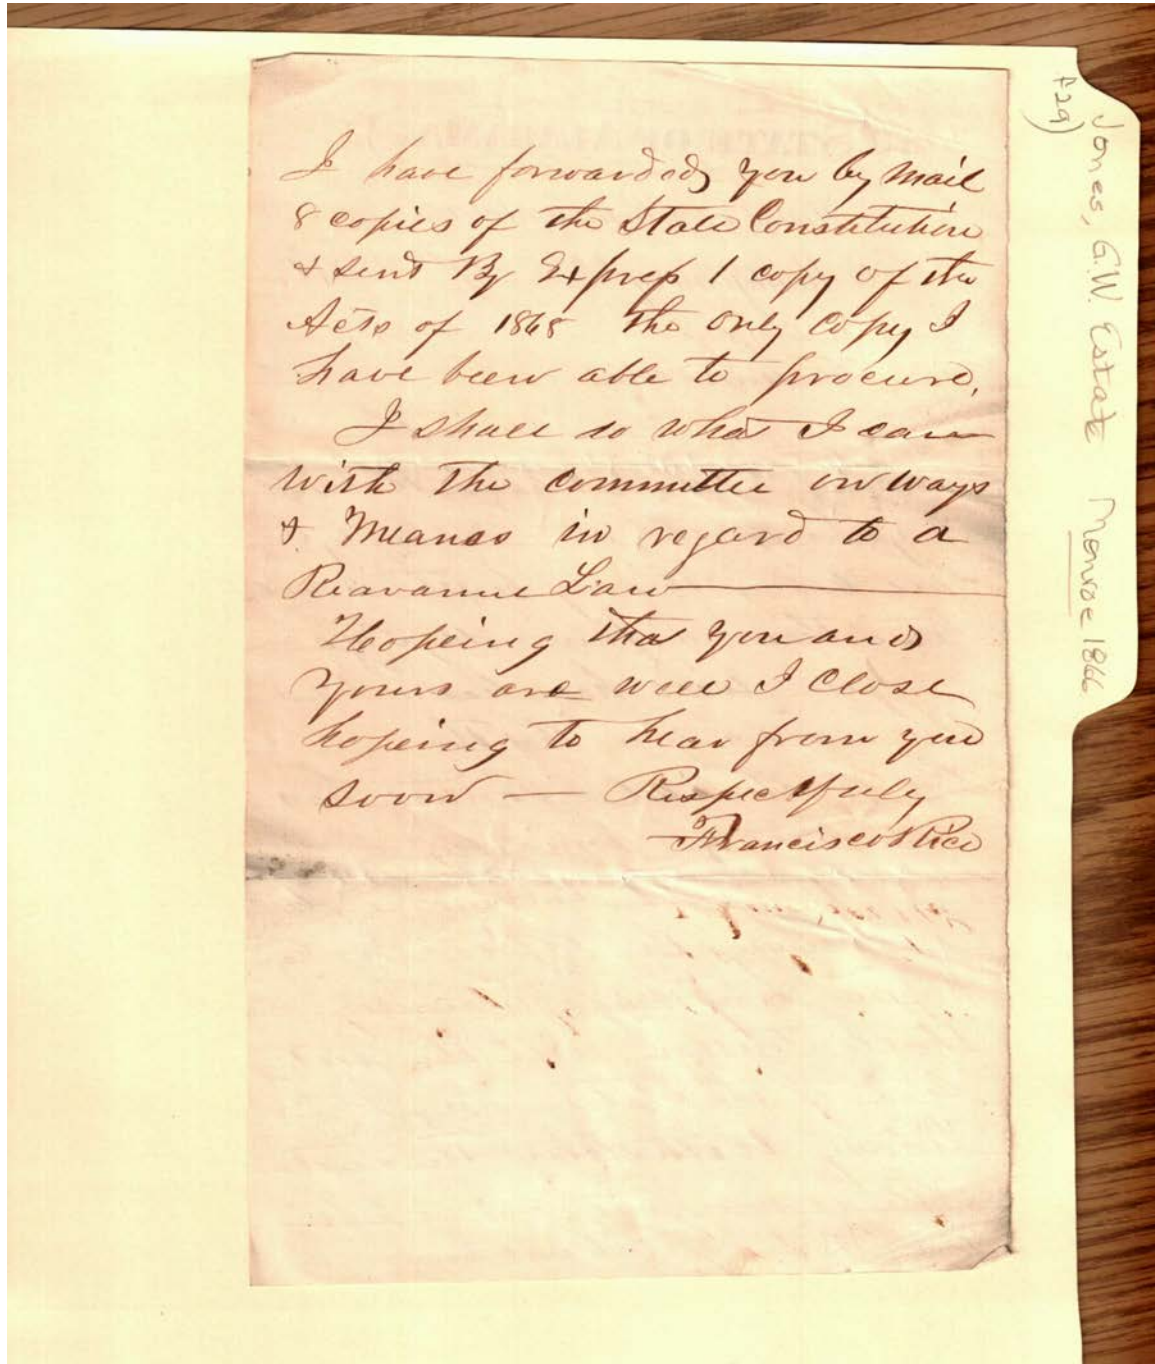 I have forwarded you by Mail
8 copies of the State Constitution
& sent By Express 1 copy of the
Acts of 1868 the only copy I
have been able to procure,
I shall do what I can
with the committee on Ways
& Meanes in regard to a
Reavanue Law
Hopeing tha you and
yours are well I Close
hopeing to hear from you
soon — Respectfuly
Francisco Rice
Jones, G.W. Estate Monroe 1866
F29)